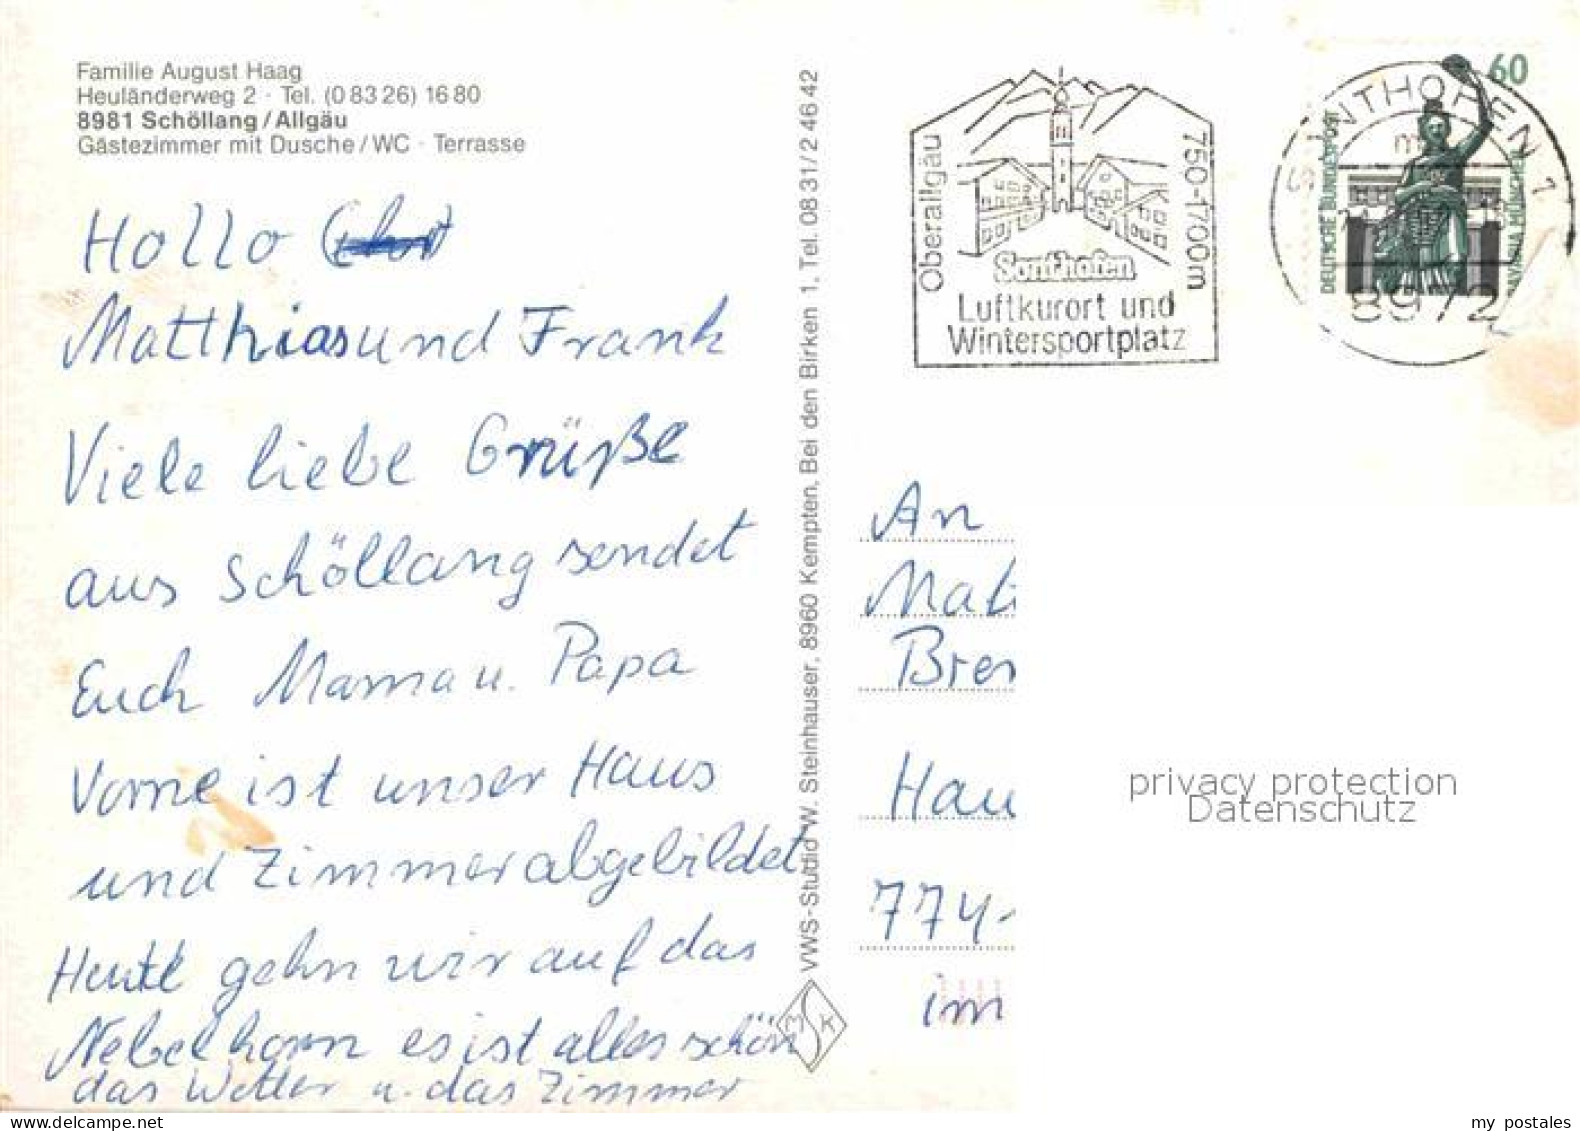 Familie August Haag
Heuländerweg 2 · Tel. (0 83 26) 16 80
8981 Schöllang / Allgäu
Gästezimmer mit Dusche / WC · Terrasse
Hollo
Matthias und Frank
Viele liebe Grüße
aus Schöllang sendet
Euch Mama u. Papa
Vorne ist unser Haus
und Zimmer abgebildet
Heute gehn wir auf das
Nebelhorn es ist alles schön
das Wetter u. das Zimmer
VWS-Studio W. Steinhauser, 8960 Kempten, Bei den Birken 1, Tel. 08 31/2 46 42
Oberallgäu
750-1700m
Sonthofen
Luftkurort und
Wintersportplatz
SONTHOFEN 1
8972
60
DEUTSCHE BUNDESPOST
BAVARIA MÜNCHEN
An
Mat
Bre
Hau
774
im
privacy protection
Datenschutz
my postales